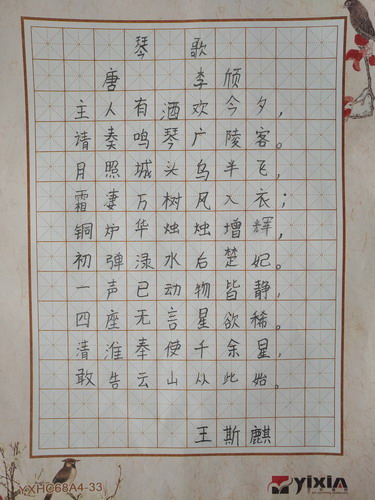 琴歌
唐 李颀
主人有酒欢今夕，
请奏鸣琴广陵客。
月照城头乌半飞，
霜凄万树风入衣；
铜炉华烛烛增辉，
初弹渌水后楚妃。
一声已动物皆静，
四座无言星欲稀。
清淮奉使千余里，
敢告云山从此始。
王斯麒
YXHC68A4-33
yixin